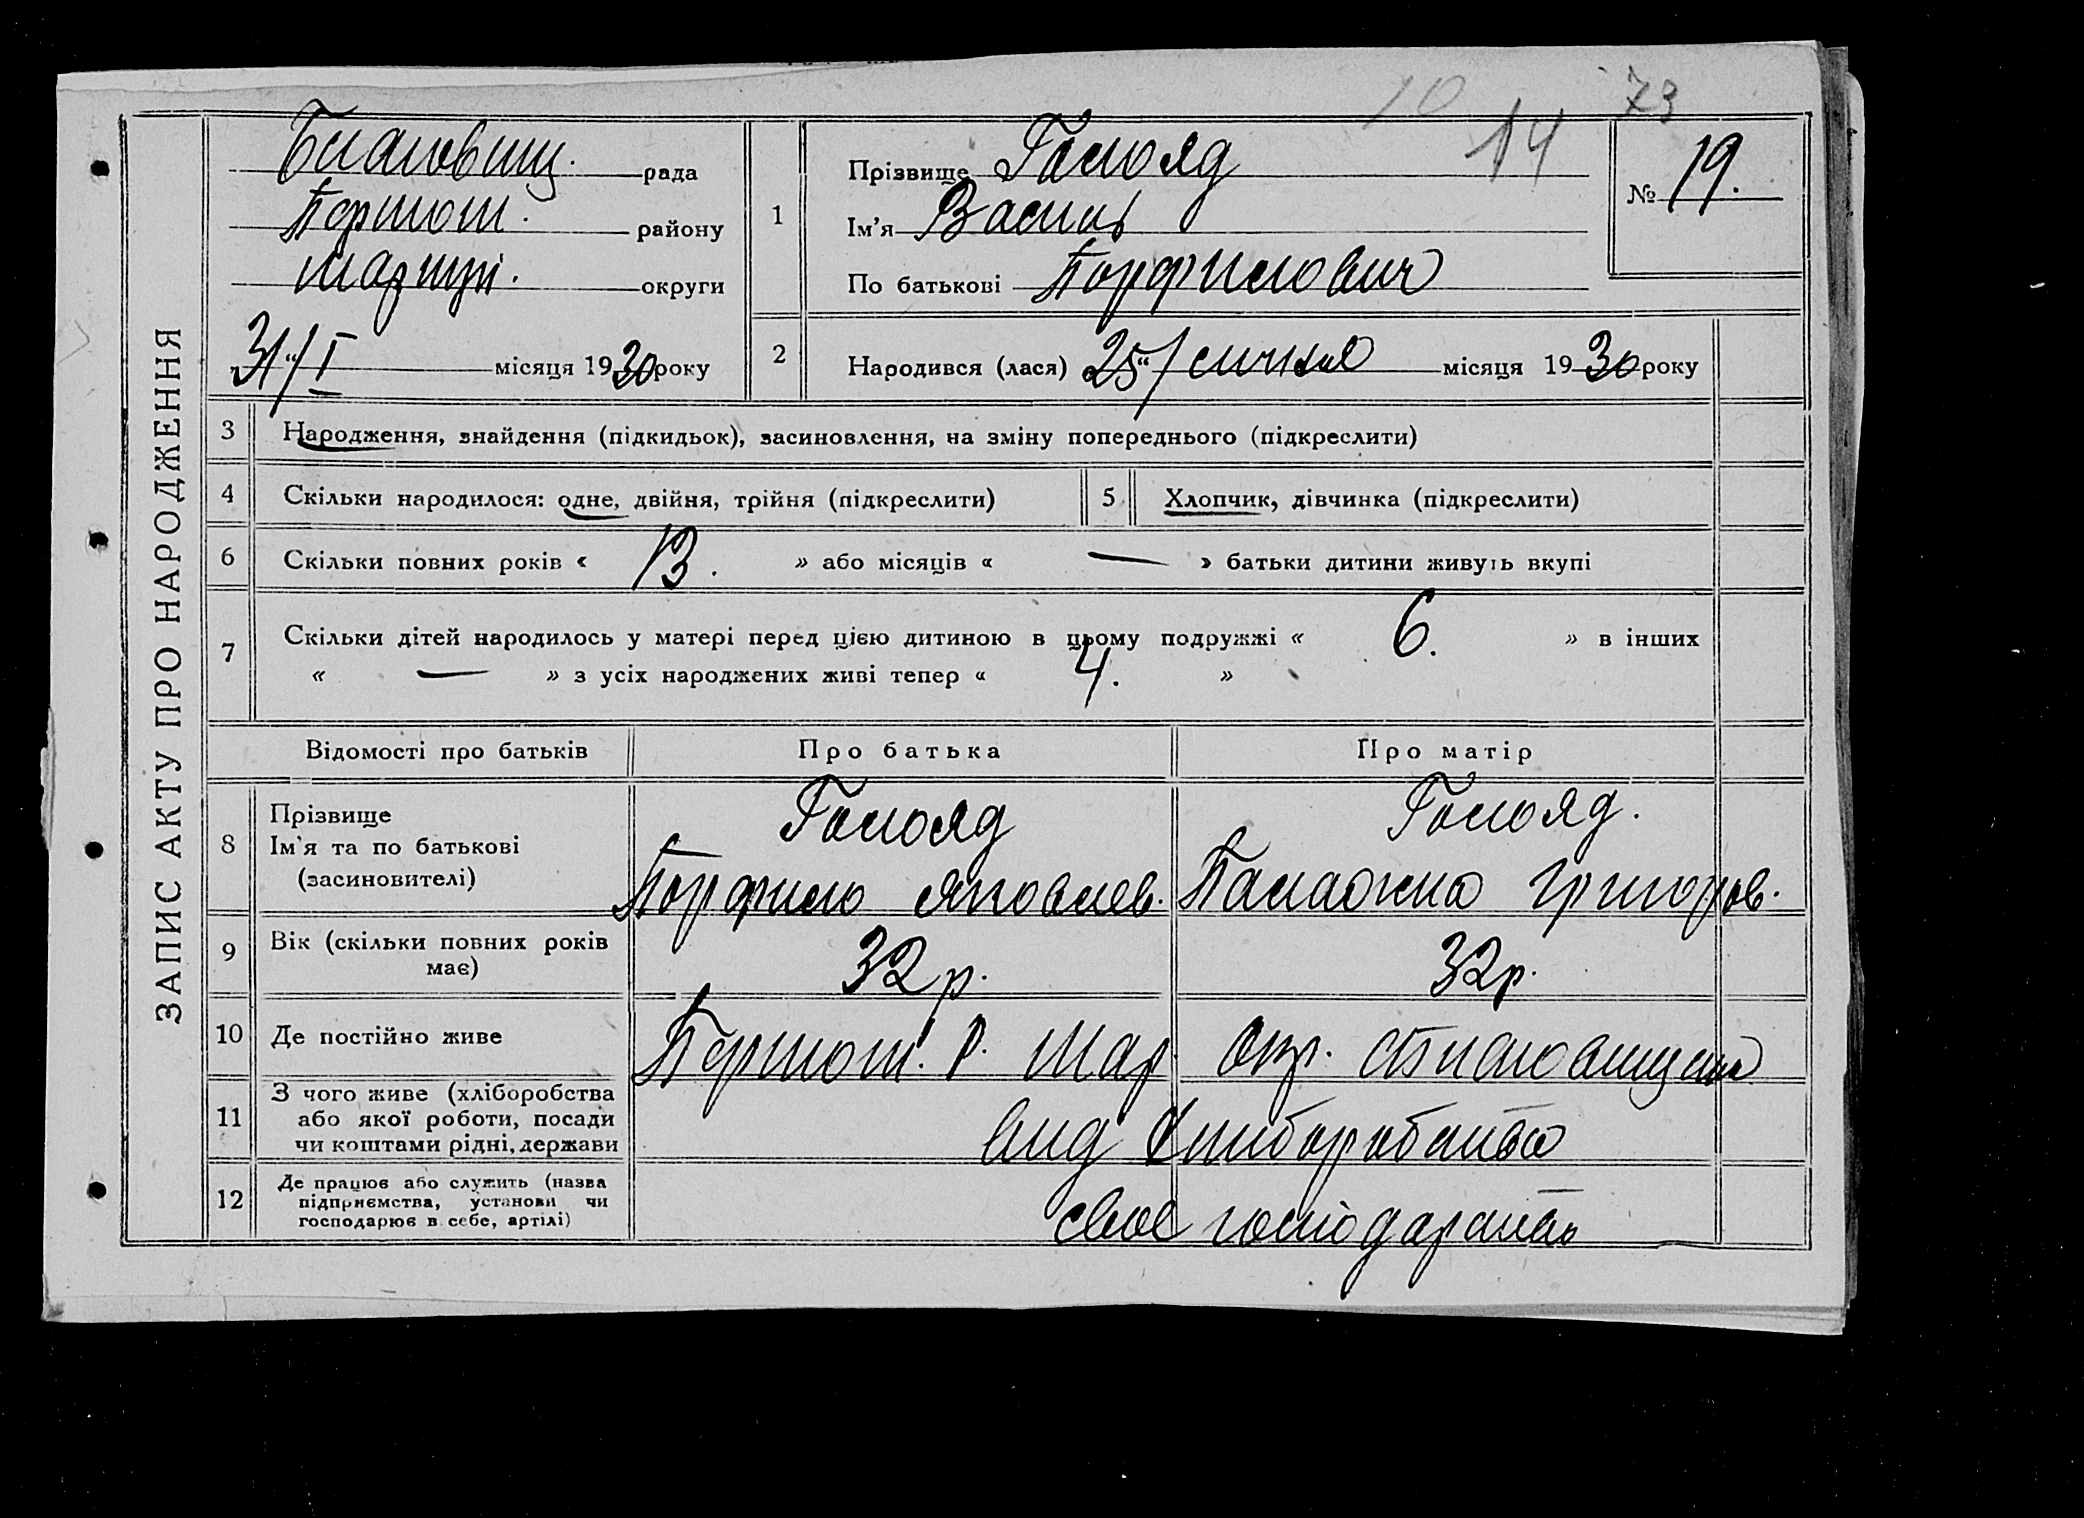 10 14 73
ЗАПИС АКТУ ПРО НАРОДЖЕННЯ
рада
району
округи
31/I місяця 1930 року
1
Прізвище Голояд
Ім'я Василь
По батькові Порфилович
№ 19.
2 Народився (лася) „25“/ січня місяця 1930 року
3 Народження, знайдення (підкидьок), засиновлення, на зміну попереднього (підкреслити)
4 Скільки народилося: одне, двійня, трійня (підкреслити)
5 Хлопчик, дівчинка (підкреслити)
6 Скільки повних років « 13. » або місяців « — » батьки дитини живуть вкупі
7 Скільки дітей народилось у матері перед цією дитиною в цьому подружжі « 6. » в інших
« — » з усіх народжених живі тепер « 4. »
Відомості про батьків Про батька Про матір
8 Прізвище
Ім'я та по батькові
(засиновителі)
Голояд
Порфило Яковлев.
Голояд.
Палажка Григоров.
9 Вік (скільки повних років
має)
32 р.
32 р.
10 Де постійно живе
р. Мар окр.
11 З чого живе (хліборобства
або якої роботи, посади
чи коштами рідні, держави
вид хлиборобства
12 Де працює або служить (назва
підприємства, установи чи
господарює в себе, артілі)
свое господарство